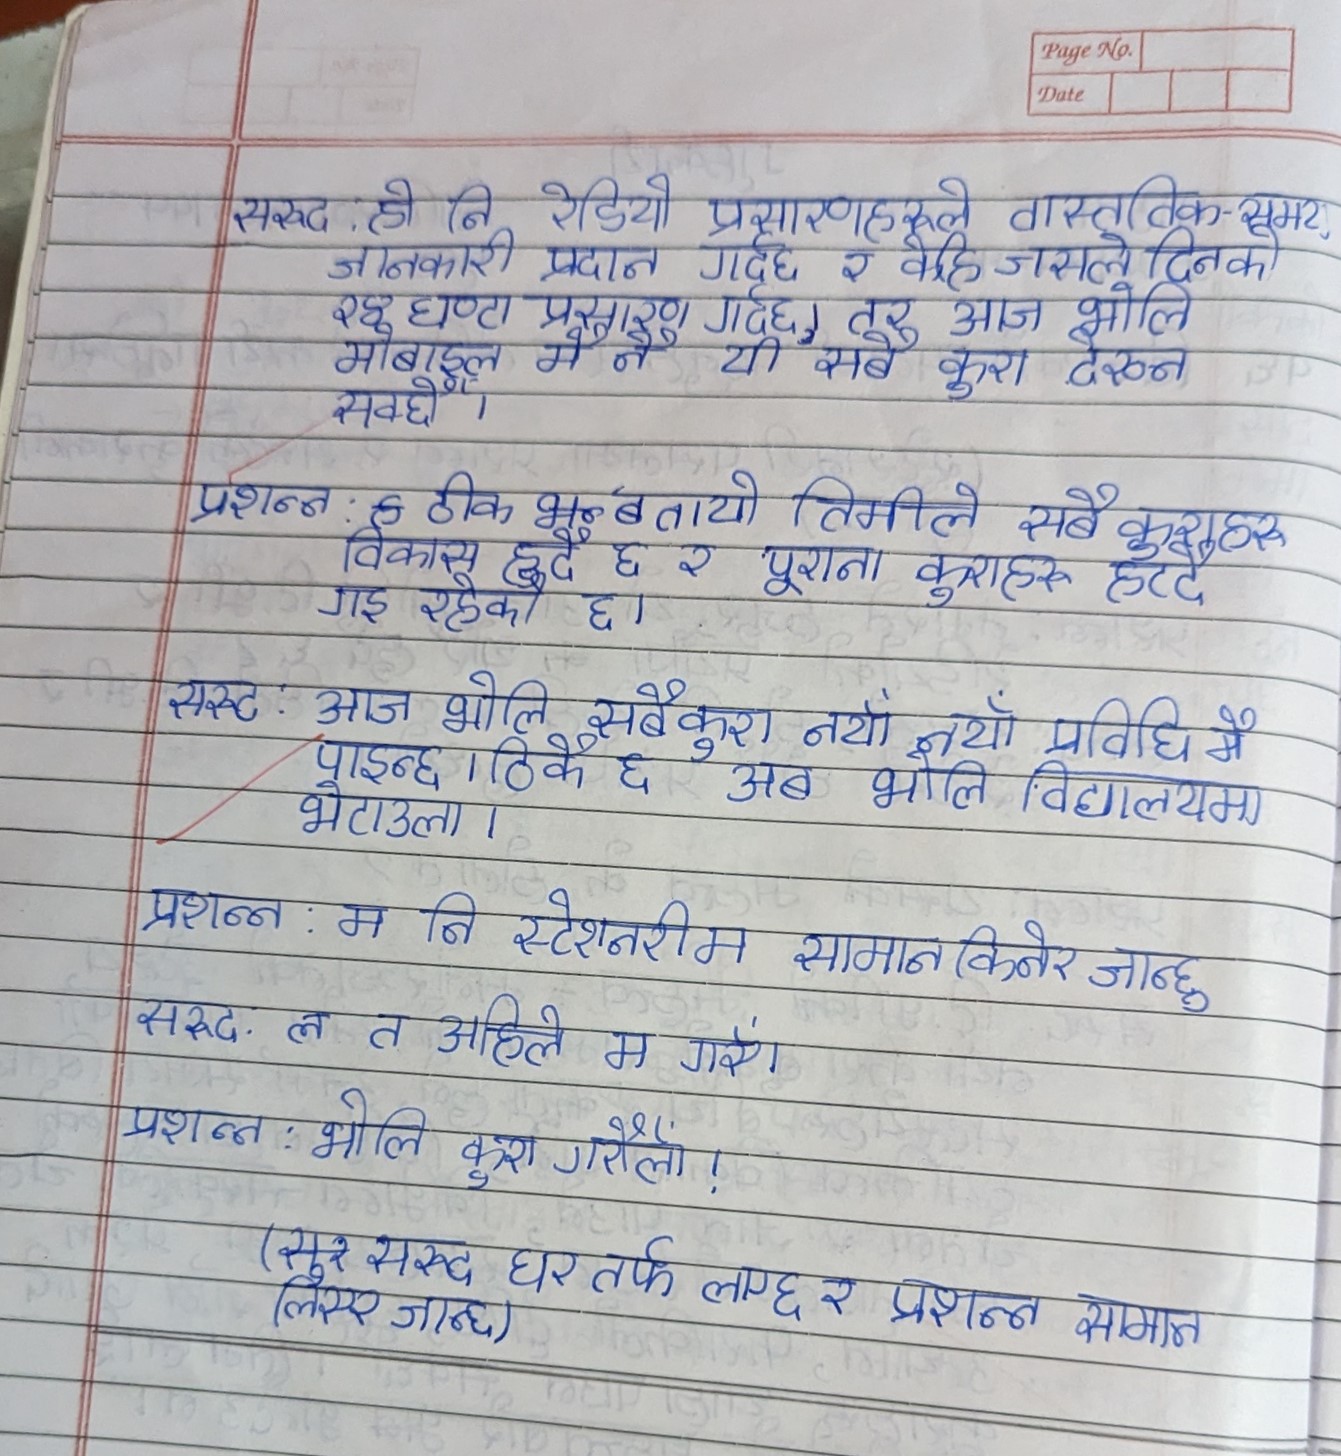 Page No.
Date
सरुद : हो नि रेडियो प्रसारणहरूले वास्तुविक-समय
जानकारी प्रदान गर्दछ र केहि जसले दिनको
२४ घण्टा प्रसारण गर्दछ, तर आज भोलि
मोबाइल मै नै यी सबै कुरा देख्न
सक्छौँ ।
प्रशन्न : ठीक बतायो तिमीले सबै कुराहरू
विकास हुदै छ र पूराना कुराहरू हट्दै
गइ रहेको छ।
सरुद : आज भोलि सबैकुरा नयाँ नयाँ प्रविधि मै
पाइन्छ । ठिकै छ अब भोलि विद्यालयमा
भेटाउला ।
प्रशन्न : म नि स्टेशनरीम सामान किनेर जान्छु
सरुद. ल त अहिले म गएँ।
प्रशन्न : भोलि कुरा गरौँला ।
(सरुद घर तर्फ लाग्छ र प्रशन्न सामान
लिएर जान्छ)